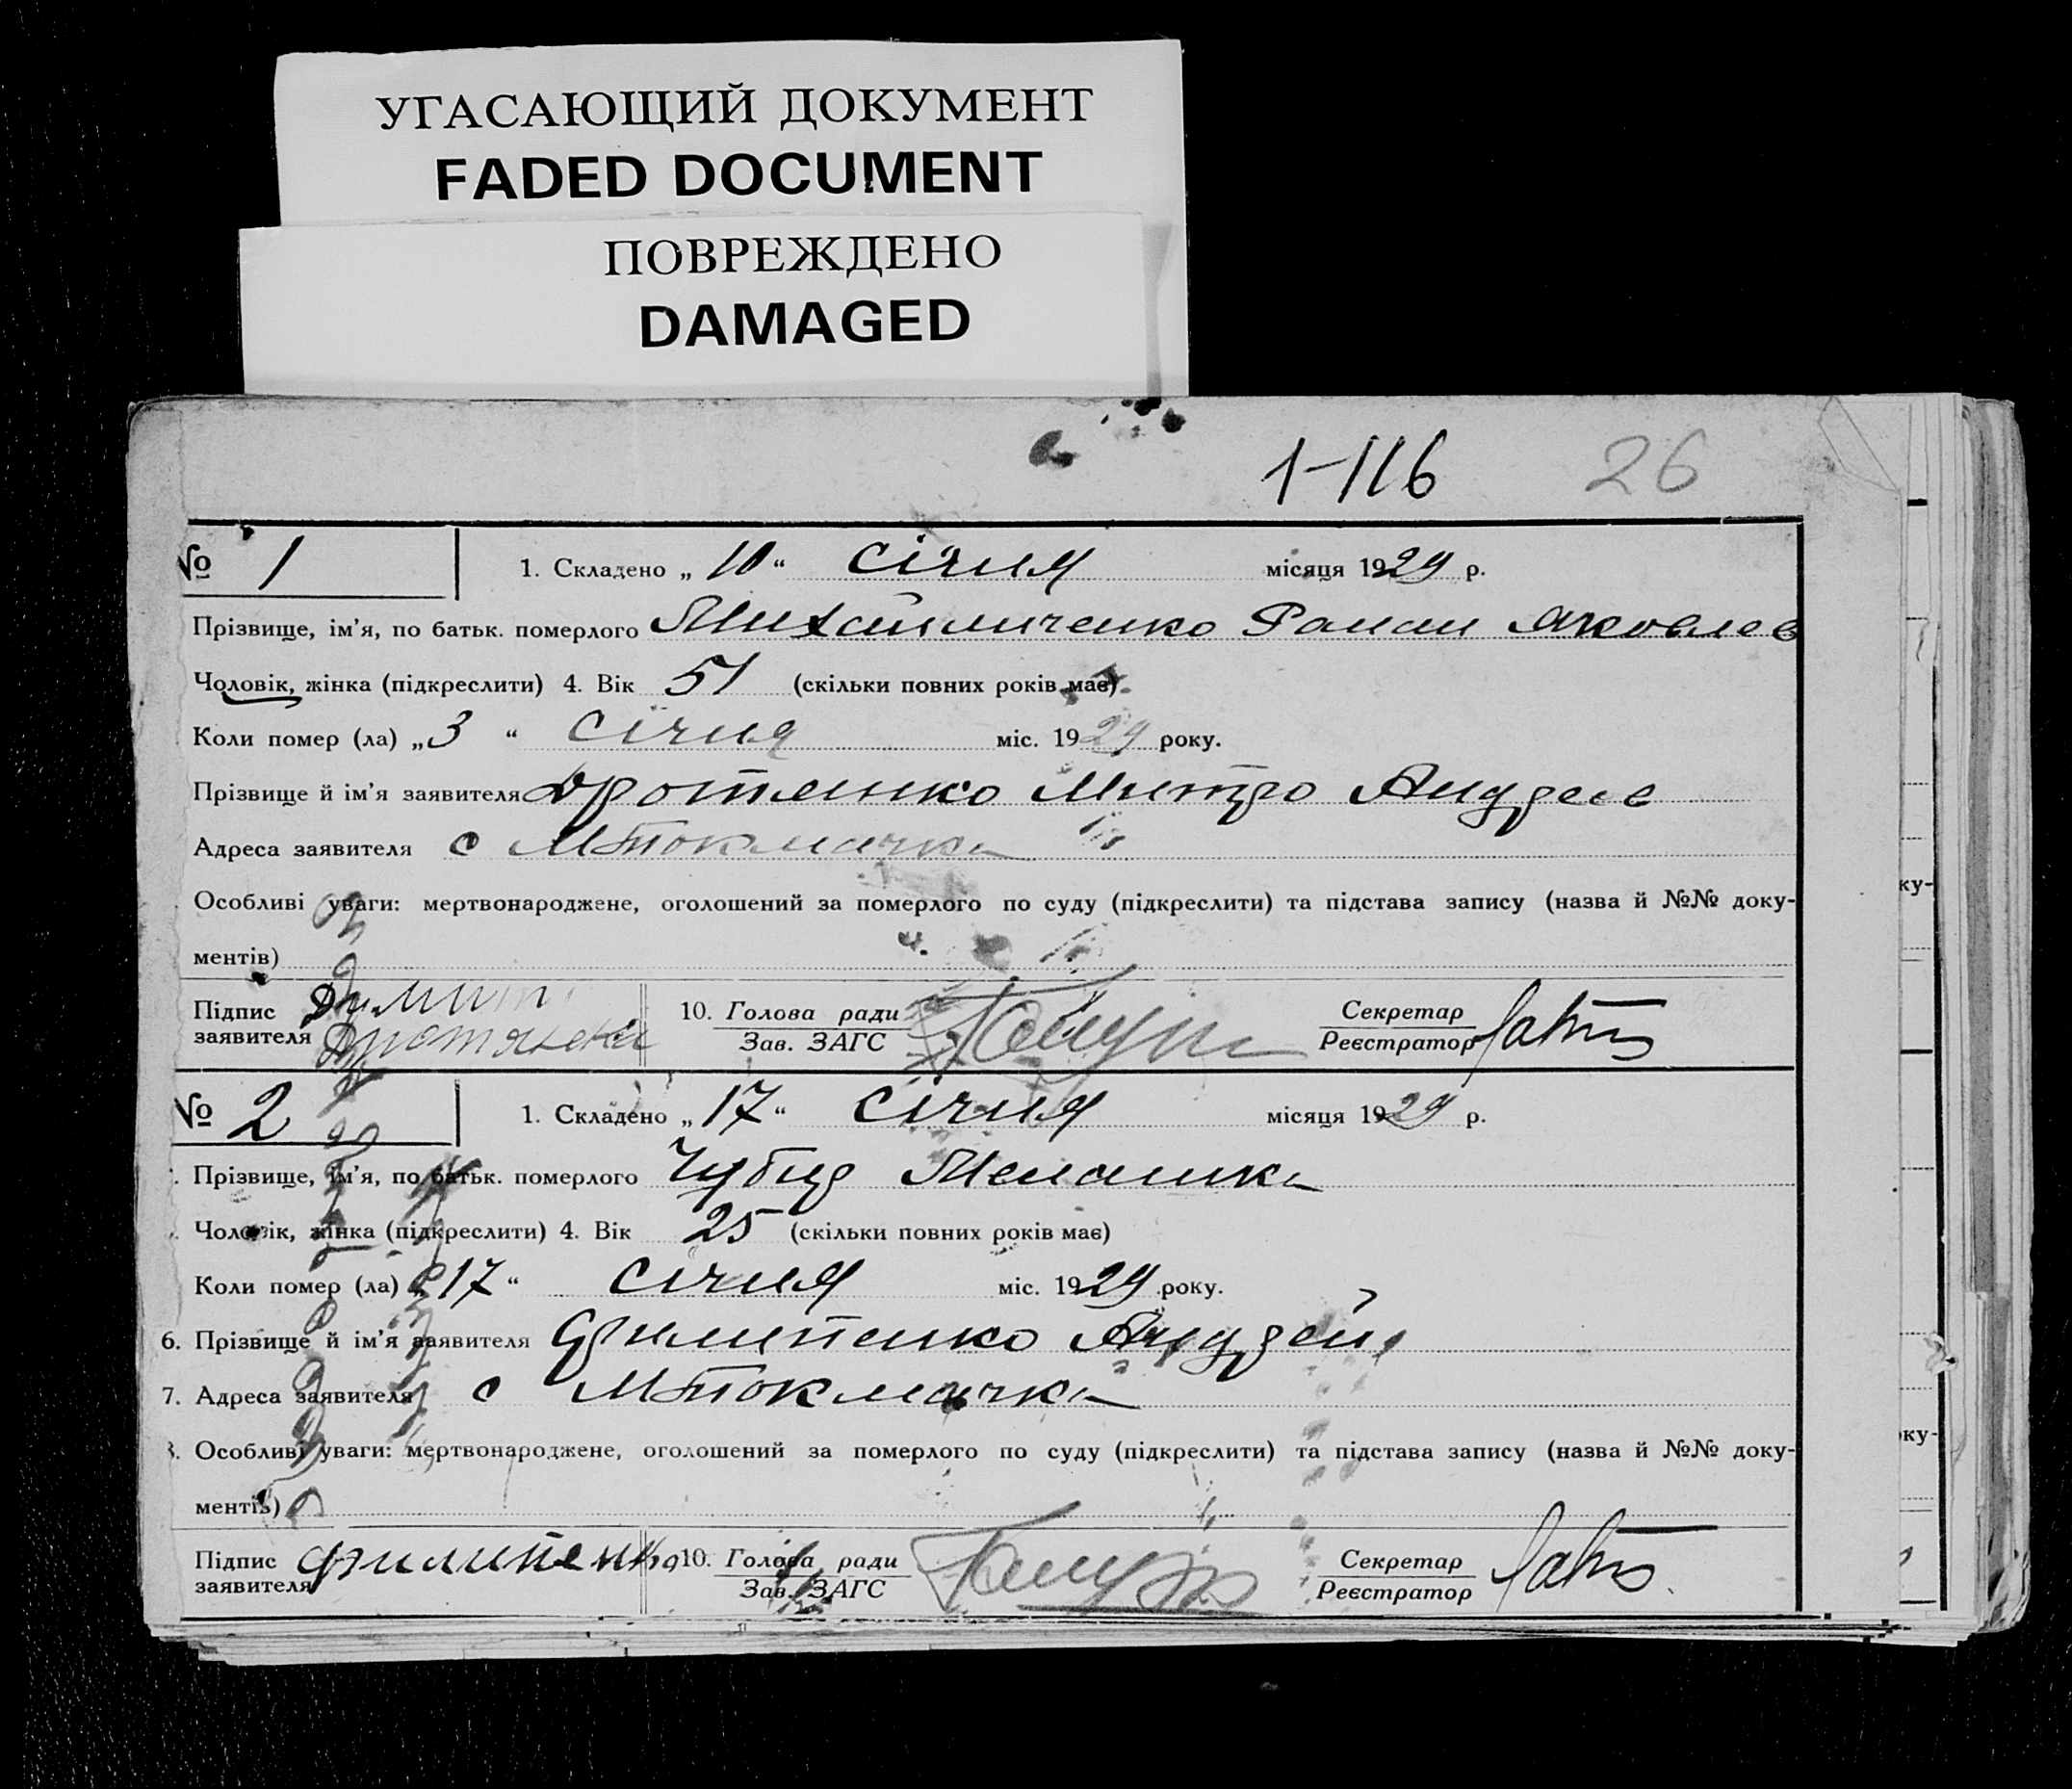 УГАСАЮЩИЙ ДОКУМЕНТ
FADED DOCUMENT
ПОВРЕЖДЕНО
DAMAGED
1-116 26
№ 1 1. Складено „10“ січня місяця 1929 р.
Прізвище, ім'я, по батьк. померлого Михайличенко Роман Яковлев
Чоловік, жінка (підкреслити) 4. Вік 51 (скільки повних років має)
Коли помер (ла) „3“ січня міс. 1929 року.
Прізвище й ім'я заявителя Дротянко Митро Андреев
Адреса заявителя с МТокмачка
Особливі уваги: мертвонароджене, оголошений за померлого по суду (підкреслити) та підстава запису (назва й №№ доку-
ментів)
Підпис заявителя Димит
10. Голова ради
Зав. ЗАГС
Секретар
Реєстратор
№ 2 1. Складено „17“ січня місяця 1929 р.
Прізвище, ім'я, по батьк. померлого Чубур Мелашка
Чоловік, жінка (підкреслити) 4. Вік 25 (скільки повних років має)
Коли помер (ла) „17“ січня міс. 1929 року.
6. Прізвище й ім'я заявителя Филипенко Андрей
7. Адреса заявителя с МТокмачка
8. Особливі уваги: мертвонароджене, оголошений за померлого по суду (підкреслити) та підстава запису (назва й №№ доку-
ментів)
Підпис заявителя Филипенко
10. Голова ради
Зав. ЗАГС
Секретар
Реєстратор
ку-
ку-